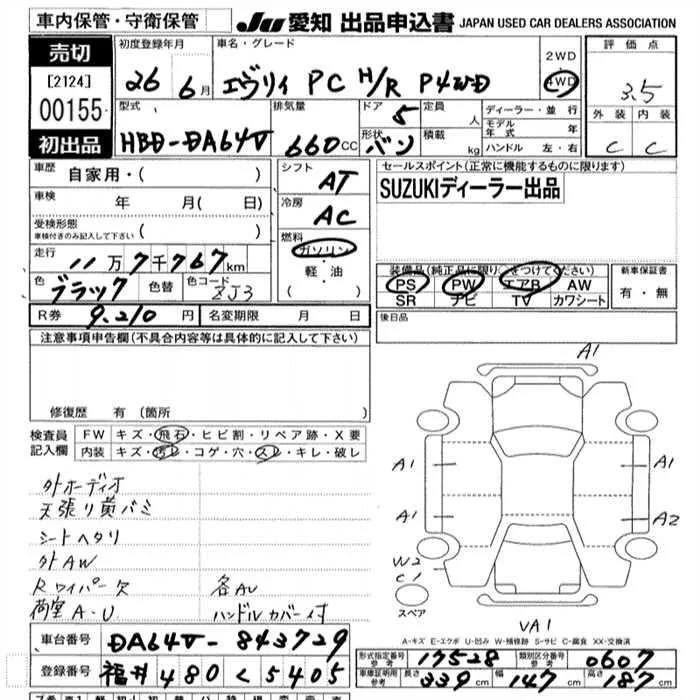 車内保管・守衛保管
JU 愛知 出品申込書 JAPAN USED CAR DEALERS ASSOCIATION
売切
[2124]
00155
初出品
初度登録年月
26 6月
車名・グレード
エヴリィ PC H/R P4WD
2WD
4WD
評価点
3.5
外装 内装
C C
型式
HBD-DA64V
排気量
660cc
ドア 5
形状 バン
定員 人
積載 kg
ディーラー・並行
モデル年式 年
ハンドル 左・右
車歴 自家用・( )
車検 年 月( 日)
受検形態
車検付きのみ記入して下さい ( )
走行 11万7千767km
色 ブラック 色替 色コード ZJ3
シフト AT
冷房 AC
燃料
ガソリン
軽・油
( )
セールスポイント(正常に機能するものに限ります)
SUZUKIディーラー出品
装備品(純正品に限り○をつけてください)
PS PW エアB AW
SR ナビ TV カワシート
新車保証書
有・無
R券 9,210円 名変期限 月 日
後日品
注意事項申告欄(不具合内容等は具体的に記入して下さい)
修復歴 有 (箇所
検査員記入欄
FW キズ・飛石・ヒビ割・リペア跡・X要
内装 キズ・汚レ・コゲ・穴・スレ・キレ・破レ
外オーディオ
天張り黄バミ
シートヘタリ
外AW
Rワイパー欠 各AU
荷室A-U ハンドルカバー付
A1
A1 A1
A1 A2
W2
C1
スペア
VA1
A-キズ E-エクボ U-凹み W-補修跡 S-サビ C-腐食 XX-交換済
車台番号 DA64V-843729
登録番号 福井 480 く 5405
形式指定番号 参考 17528 類別区分番号 参考 0607
車庫証明用 参考 長さ 339cm 幅 147cm 高さ 187cm